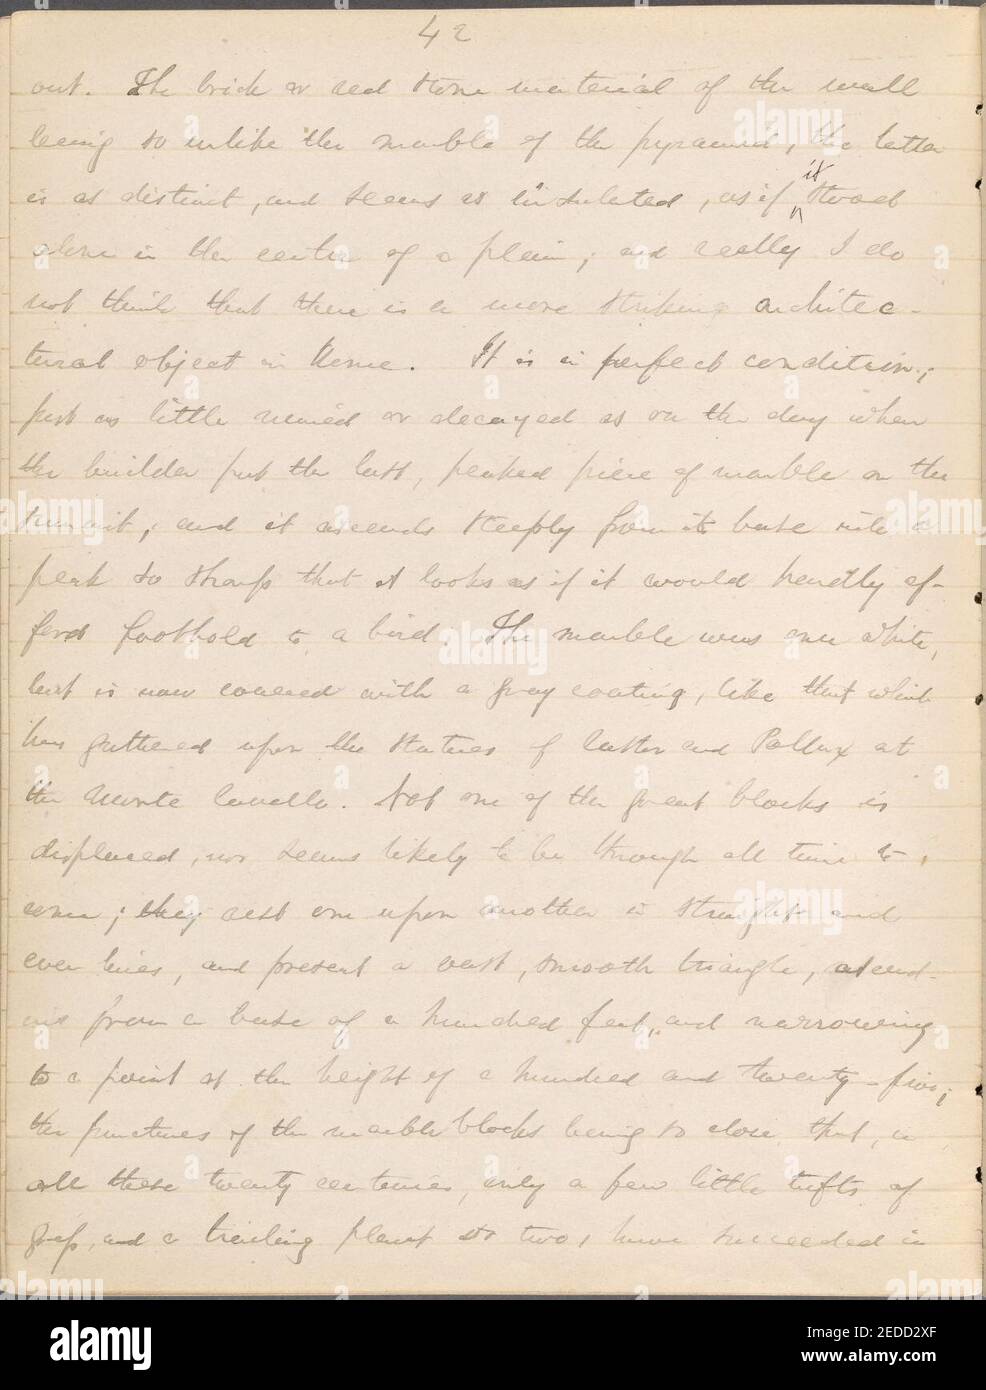 42
out. The brick or red stone material of the wall
being so unlike the marble of the pyramid, the latter
is as distinct, and seems as insulated, as if it stood
alone in the centre of a plain; and really I do
not think that there is a more striking architec-
tural object in Rome. It is in perfect condition;
just as little ruined or decayed as on the day when
the builder put the last, peaked piece of marble on the
summit; and it ascends steeply from its base into a
peak so sharp that it looks as if it would hardly af-
ford foothold to a bird. The marble was once white,
but is now covered with a gray coating, like that which
has gathered upon the statues of Castor and Pollux at
the Monte Cavallo. Not one of the great blocks is
displaced, nor seems likely to be through all time to
come; they rest one upon another in straight and
even lines, and present a vast, smooth triangle, ascend-
ing from a base of a hundred feet, and narrowing
to a point at the height of a hundred and twenty-five;
the junctures of the marble blocks being so close, that, in
all these twenty centuries, only a few little tufts of
grass, and a trailing plant or two, have succeeded in
alamy
Image ID: 2EDD2XF
www.alamy.com